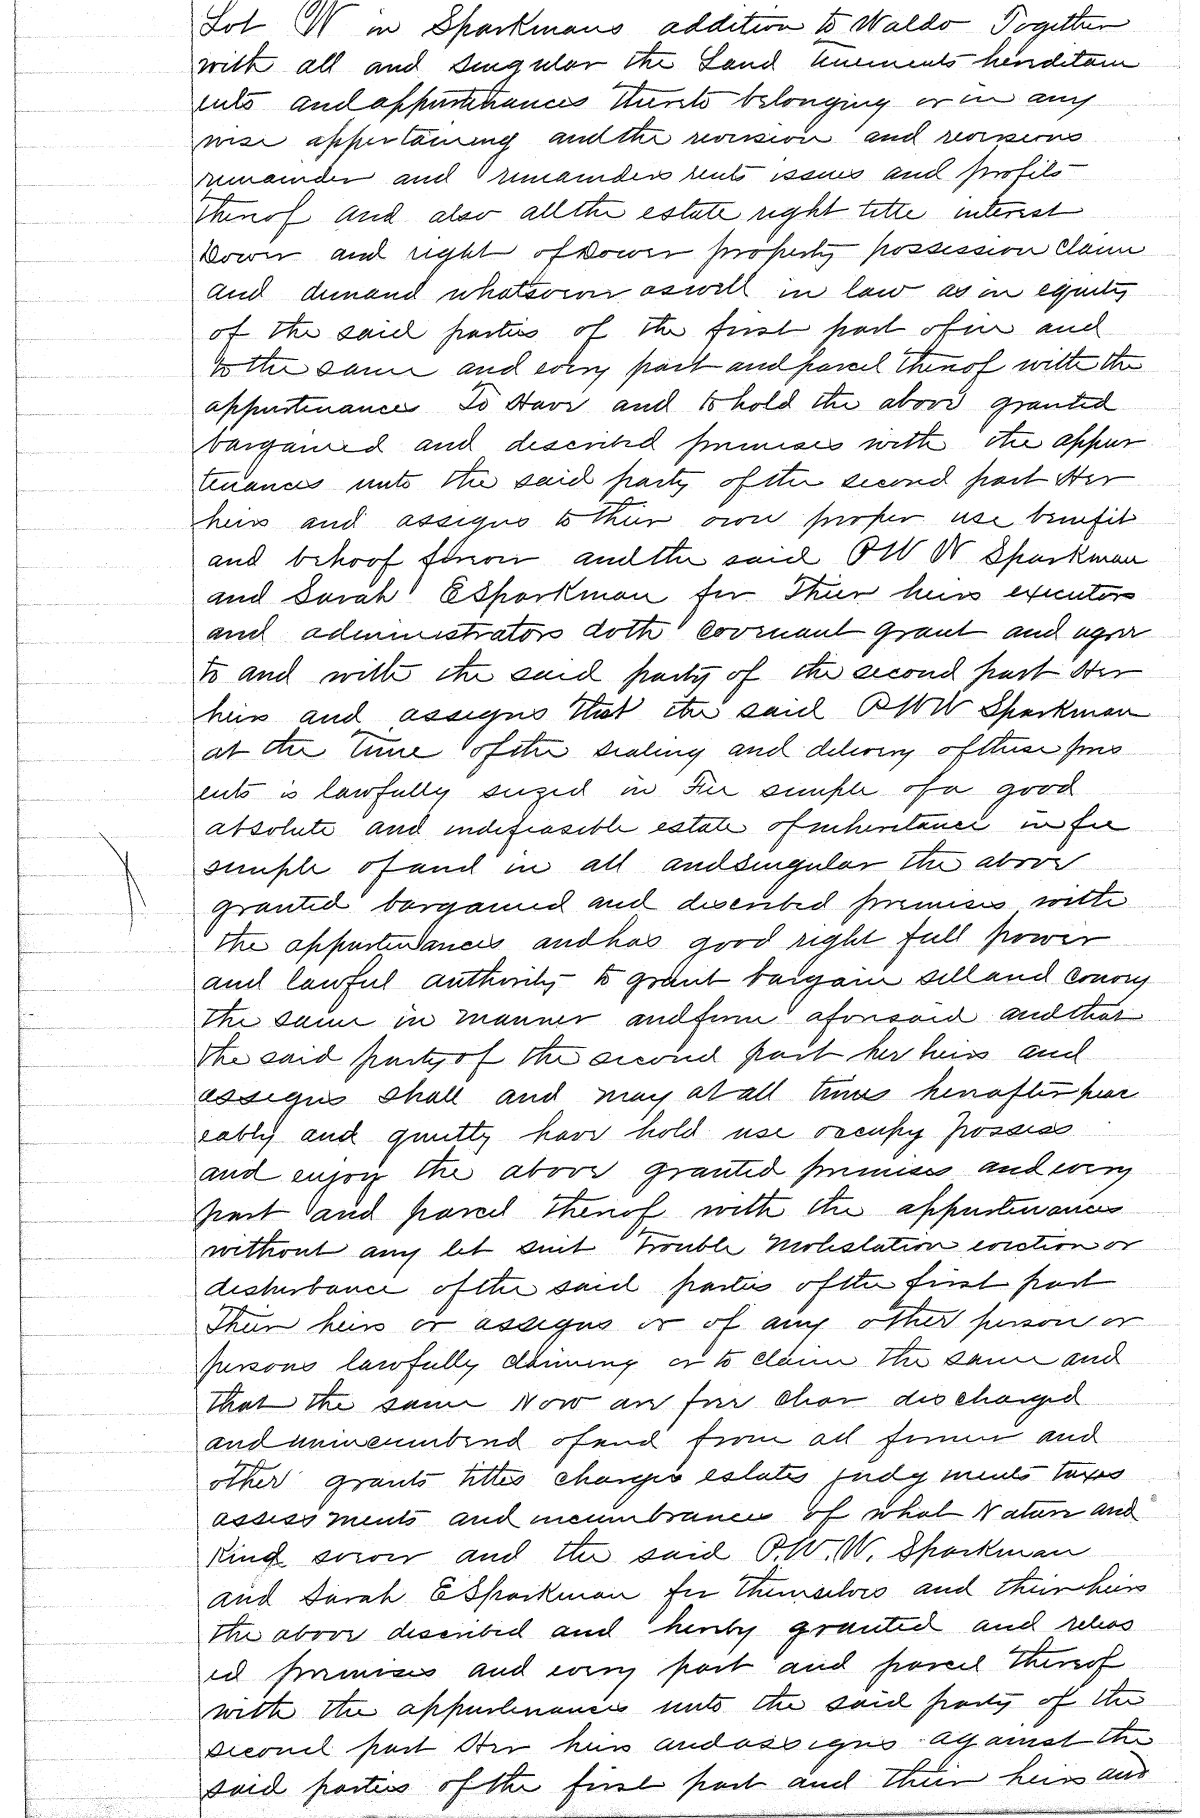 Lot W in Sparkmans addition to Waldo Together
with all and singular the Land tenements hereditam
ents and appurtenances thereto belonging or in any
wise appertaining and the reversion and reversions
remainder and remainders rents issues and profits
thereof and also all the estate right title interest
Dower and right of Dower property possession claim
and demand whatsoever as well in law as in equity
of the said parties of the first part of in and
to the same and every part and parcel thereof with the
appurtenances To Have and to hold the above granted
bargained and described premises with the appur
tenances unto the said party of the second part Her
heirs and assigns to their own proper use benefit
and behoof forever and the said P W W Sparkman
and Sarah E Sparkman for Their heirs executors
and administrators doth covenant grant and agree
to and with the said party of the second part Her
heirs and assigns that the said P W W Sparkman
at the time of the sealing and delivery of these pres
ents is lawfully seized in Fee simple of a good
absolute and indefeasible estate of inheritance in fee
simple of and in all and singular the above
granted bargained and described premises with
the appurtenances and has good right full power
and lawful authority to grant bargain sell and convey
the same in manner and form aforesaid and that
the said party of the second part her heirs and
assigns shall and may at all times hereafter peac
eably and quietly have hold use occupy possess
and enjoy the above granted premises and every
part and parcel thereof with the appurtenances
without any let suit trouble molestation eviction or
disturbance of the said parties of the first part
Their heirs or assigns or of any other person or
persons lawfully claiming or to claim the same and
that the same Now are free clear discharged
and unincumbered of and from all former and
other grants titles charges estates judgments taxes
assessments and incumbrances of what Nature and
Kind soever and the said P. W. W. Sparkman
and Sarah E Sparkman for themselves and their heirs
the above described and hereby granted and releas
ed premises and every part and parcel thereof
with the appurtenances unto the said party of the
second part Her heirs and assigns against the
said parties of the first part and their heirs and